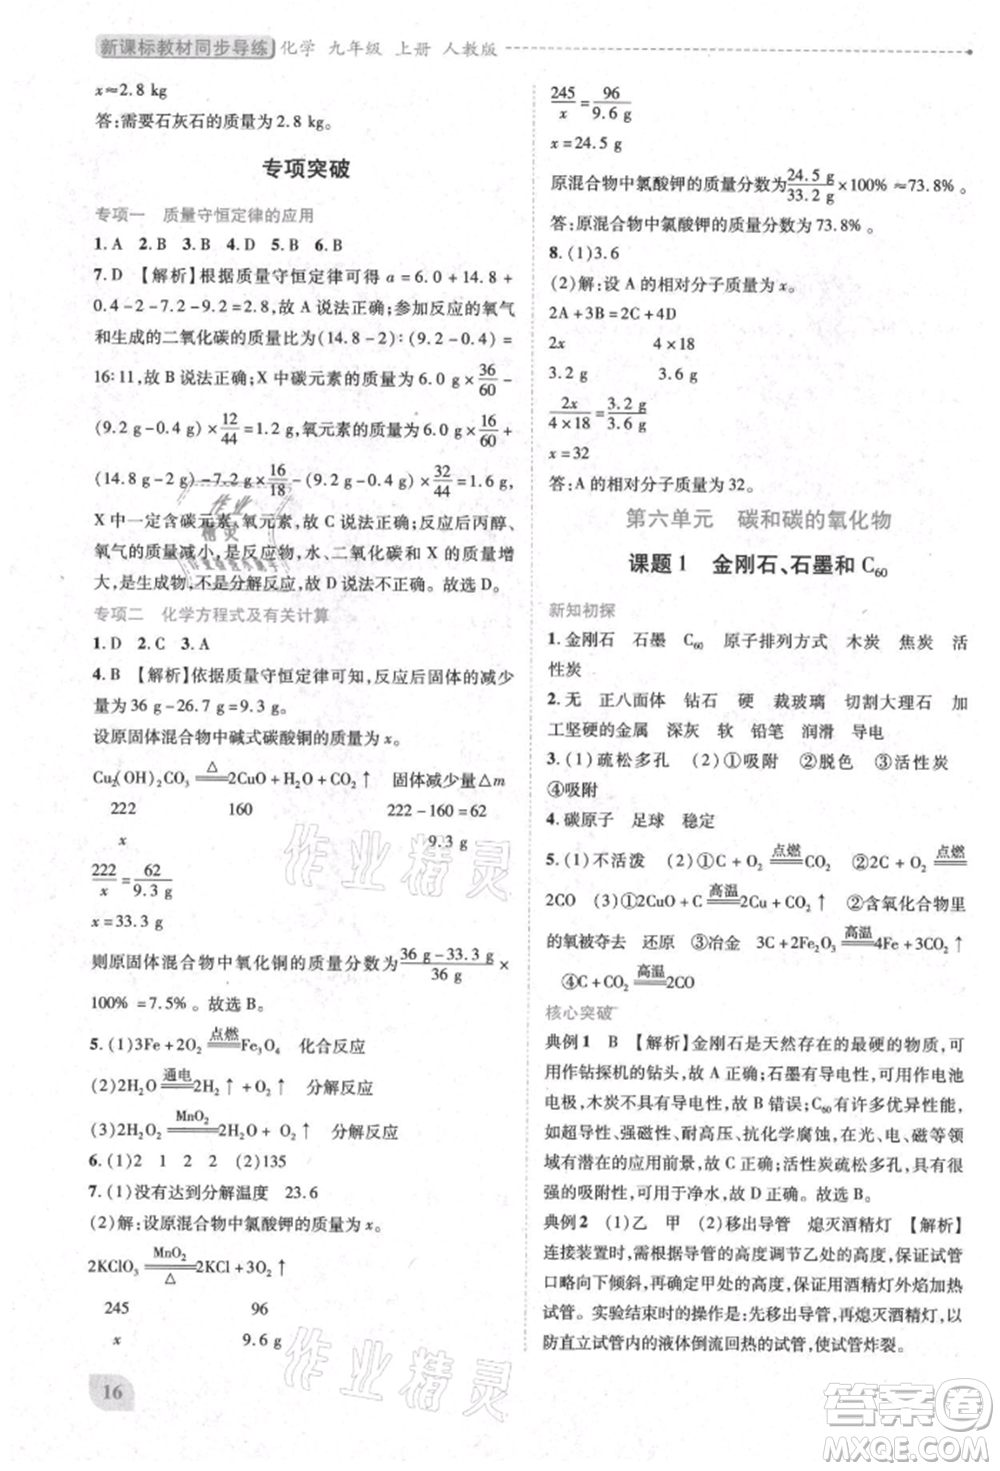 新课标教材同步导练 化学 九年级 上册 人教版
x≈2.8 kg
答:需要石灰石的质量为2.8 kg。
专项突破
专项一 质量守恒定律的应用
1. A 2. B 3. B 4. B 5. B 6. B
7. D 【解析】根据质量守恒定律可得 a=6.0+14.8+
0.4-2-7.2-9.2=2.8,故A说法正确;参加反应的氧气
和生成的二氧化碳的质量比为(14.8-2):(9.2-0.4)=
16:11,故B说法正确;X中碳元素的质量为6.0 g×36/60-
(9.2 g-0.4 g)×12/44=1.2 g,氧元素的质量为6.0 g×16/60+
(14.8 g-2 g)-7.2 g×16/18-(9.2 g-0.4 g)×32/44=1.6 g,
X中一定含有碳元素、氧元素,故C说法错误;丙醇、
氧气的质量减小,是反应物,水、二氧化碳和X的质
量增加,是生成物,故D说法正确。
专项二 化学方程式及有关计算
1. D 2. C 3. A
4. B 【解析】依据质量守恒定律可知,反应后固体的减少
量为36 g-26.7 g=9.3 g。
设原固体混合物中碱式碳酸铜的质量为x。
Cu₂(OH)₂CO₃ =△= 2CuO+H₂O+CO₂↑ 固体减少量△m
222 160 222-160=62
x 9.3 g
222/x=62/9.3 g
x=33.3 g
则原固体混合物中氧化铜的质量分数为(36 g-33.3 g)/36 g×
100%=7.5%。故选B。
5. (1)3Fe+2O₂ =点燃= Fe₃O₄ 化合反应
(2)2H₂O =通电= 2H₂↑+O₂↑ 分解反应
(3)2H₂O₂ =MnO₂= 2H₂O+O₂↑ 分解反应
6. (1)2 1 2 2 (2)135
7. (1)没有达到分解温度 23.6
(2)解:设原混合物中氯酸钾的质量为x。
2KClO₃ =MnO₂/△= 2KCl+3O₂↑
245 96
x 9.6 g
16
245/x=96/9.6 g
x=24.5 g
原混合物中氯酸钾的质量分数为24.5 g/33.2 g×100%≈73.8%。
答:原混合物中氯酸钾的质量分数为73.8%。
8. (1)3.6
(2)解:设A的相对分子质量为x。
2A+3B=2C+4D
2x 4×18
3.2 g 3.6 g
2x/4×18=3.2 g/3.6 g
x=32
答:A的相对分子质量为32。
第六单元 碳和碳的氧化物
课题1 金刚石、石墨和C₆₀
新知初探
1. 金刚石 石墨 C₆₀ 原子排列方式 木炭 焦炭 活
性炭
2. 无 正八面体 钻石 硬 裁玻璃 切割大理石 加
工坚硬的金属 深灰 软 铅笔 润滑 导电
3. (1)疏松多孔 (2)①吸附 ②脱色 ③活性炭
④吸附
4. 碳原子 足球 稳定
5. (1)不活泼 (2)①C+O₂ =点燃= CO₂ ②2C+O₂ =点燃=
2CO (3)①2CuO+C =高温= 2Cu+CO₂↑ ②含氧化合物里
的氧被夺去 还原 ③冶金 3C+2Fe₂O₃ =高温= 4Fe+3CO₂↑
④C+CO₂ =高温= 2CO
核心突破
典例1 B 【解析】金刚石是天然存在的最硬的物质,可
用作钻探机的钻头,故A正确;石墨有导电性,可用作电池
电极,木炭不具有导电性,故B错误;C₆₀有许多优异性能,
如超导、强磁性、耐高压、抗化学腐蚀,在光、电、磁等领域有
潜在的应用前景,故C正确;活性炭疏松多孔,有强烈
的吸附性,可用于净水,故D正确。
典例2 (1)乙 甲 (2)移出导管 熄灭酒精灯 【解析】
连接装置时,根据导管的高度调节乙处的高度,保证试管
口略向下倾斜,再确定甲处的高度,保证用酒精灯外焰加热
试管。实验结束时的操作是:先移出导管,再熄灭酒精灯,以
防直立试管内的液体倒流回热的试管,使试管炸裂。
作业精灵
作业精灵
作业精灵
答案圈
MXQE.COM